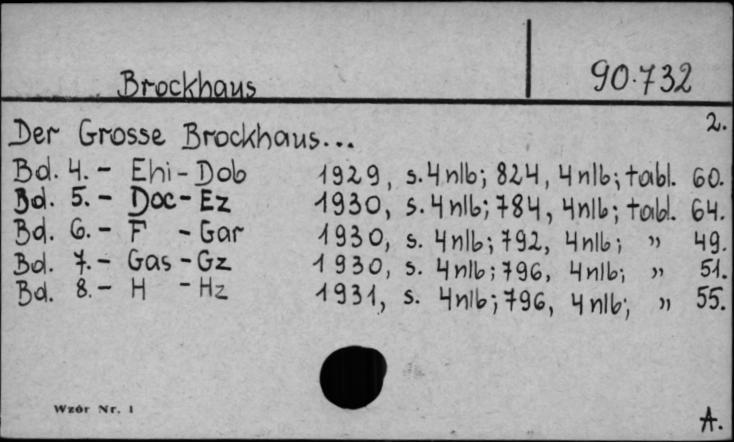 Brockhaus
90.732
2.
Der Grosse Brockhaus...
Bd. 4. - Ehi - Dob 1929, s. 4 nlb; 824, 4 nlb; tabl. 60.
Bd. 5. - Doc - Ez 1930, s. 4 nlb; 784, 4 nlb; tabl. 64.
Bd. 6. - F - Gar 1930, s. 4 nlb; 792, 4 nlb; " 49.
Bd. 7. - Gas - Gz 1930, s. 4 nlb; 796, 4 nlb; " 51.
Bd. 8. - H - Hz 1931, s. 4 nlb; 796, 4 nlb; " 55.
Wzór Nr. 1
A.